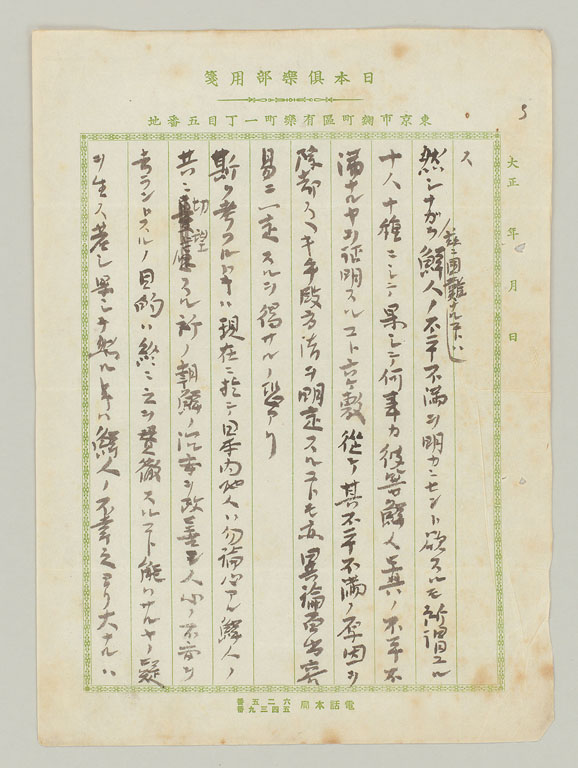 日本倶樂部用箋
東京市麹町區有樂町一丁目五番地
5
大正 年 月 日
ス
然シナガラ鮮人ノ不平不満ヲ明カニセント欲スルモ所謂
十人十種ニシテ果シテ何事カ彼等鮮人ノ不平不
満ナルヤヲ証明スルコト六ケ敷従テ其不平不満ノ原因ヲ
除却スヘキ手段方法ヲ明定スルコトモ亦異論百出容
易ニ一定スルヲ得サルノ恐アリ
斯ク考フルトキハ現在ニ於テ日本内地人ハ勿論心アル鮮人ノ
共ニ切望スル所ノ朝鮮ノ治本ヲ改善シ人心ノ不安ヲ
ランとスルノ目的ハ終ニ之ヲ貫徹スルコト能ハサルヤノ疑
ヲ生ス若シ果シテ然ルトキハ鮮人ノ不幸之ヨリ大ナルハ
電話本局
六二五番
五四三九番